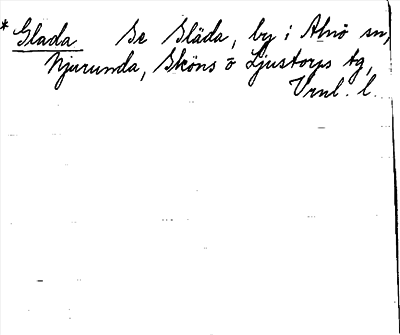 * Glada Se Släda, by i Alnö sn,
Njurunda, Sköns o Ljustorps tg,
Vrnl. l.